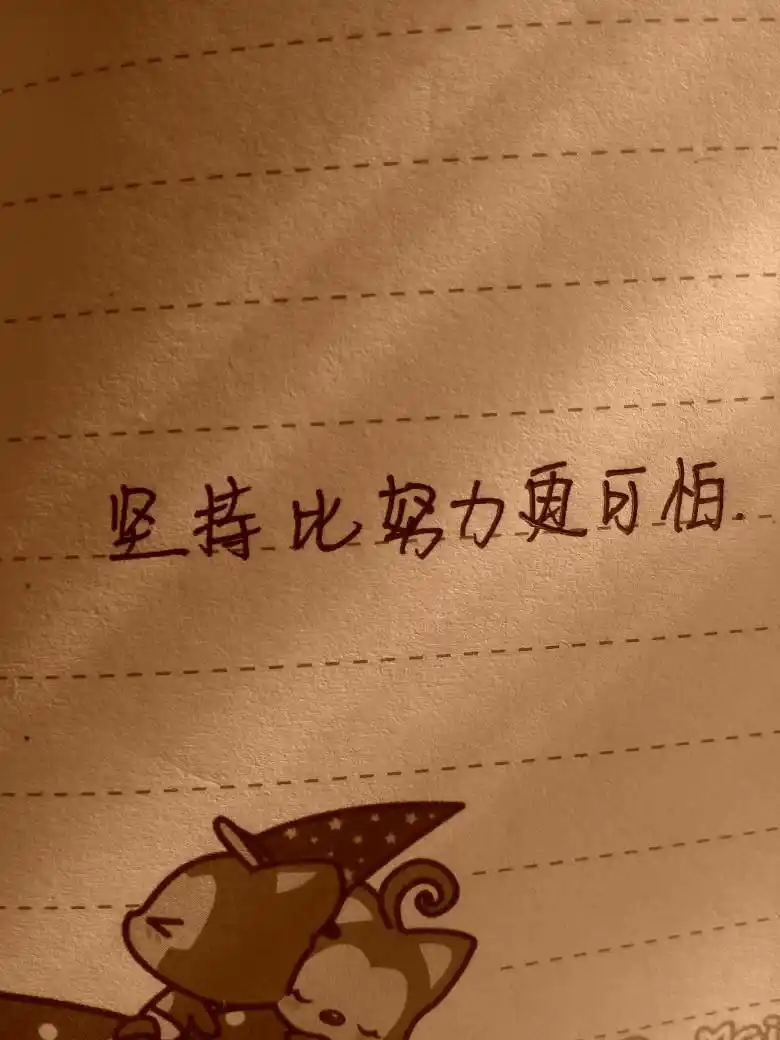 坚持比努力更可怕.